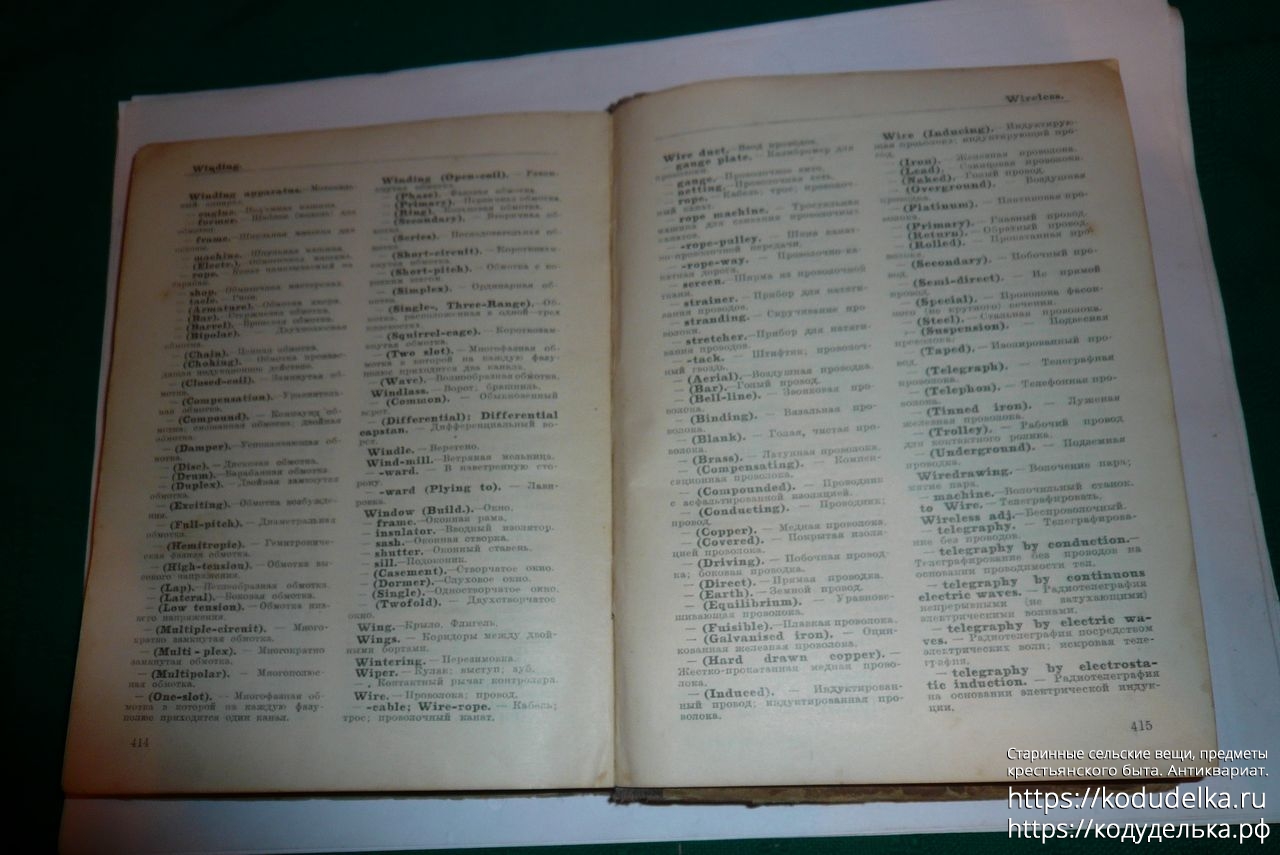 Winding.
Winding apparatus.
— engine. — Подъемная машина.
— former. — Шаблон (модель) для
обмотки.
— frame. — Шпульная машина для
— machine. — Шпульная машина.
— (Electr.). — Обмоточная машина.
— rope. — Канат наматываемый на
барабан.
— shop. — Обмоточная мастерская.
— tacle. —
— (Armature). — Обмотка якоря.
— (Bar). — Стержневая обмотка.
— (Barrel). —
— (Bipolar). — Двухполюсная
обмотка.
— (Chain). — Цепная обмотка.
— (Choking). — Обмотка
действие.
— (Closed-coil). — Замкнутая об-
мотка.
— (Compensation). — Уравнитель-
ная обмотка.
— (Compound). — Компаунд об-
мотка; смешанная обмотка; двойная
обмотка.
— (Damper). — Успокаивающая об-
мотка.
— (Disc). — Дисковая обмотка.
— (Drum). — Барабанная обмотка.
— (Duplex). — Двойная замкнутая
обмотка.
— (Exciting). — Обмотка возбужде-
ния.
— (Full-pitch). — Диаметральная
обмотка.
— (Hemitropic). — Гемитропиче-
ская фазная обмотка.
— (High-tension). — Обмотка вы-
сокого напряжения.
— (Lap). — Петлеобразная обмотка.
— (Lateral). — Боковая обмотка.
— (Low tension). — Обмотка низ-
кого напряжения.
— (Multiple-circuit). — Много-
кратно замкнутая обмотка.
— (Multi - plex). — Многократно
замкнутая обмотка.
— (Multipolar). — Многополюс-
ная обмотка.
— (One-slot). — Многофазная об-
мотка в которой на каждую фазу-
полюс приходится один канал.
414
Winding (Open-coil). — Разом-
кнутая обмотка.
— (Phase). — Фазная обмотка.
— (Primary). — Первичная обмотка.
— (Ring). — Кольцевая обмотка.
— (Secondary). — Вторичная об-
мотка.
— (Series). — Последовательная об-
мотка.
— (Short-circuit). — Короткозам-
кнутая обмотка.
— (Short-pitch). — Обмотка с ко-
ротким шагом.
— (Simplex). — Ординарная об-
мотка.
— (Single-, Three-Range). — Об-
мотка, расположенная в одной-трех
плоскостях.
— (Squirrel-cage). — Короткозам-
кнутая обмотка.
— (Two slot). — Многофазная об-
мотка в которой на каждую фазу-
полюс приходится два канала.
— (Wave). — Волнообразная обмотка.
Windlass. — Ворот; брашпиль.
— (Common). — Обыкновенный
ворот.
— (Differential); Differential
capstan. — Дифференциальный во-
рот.
Windle. — Веретено.
Wind-mill. — Ветряная мельница.
— -ward. — В наветренную сто-
рону.
— -ward (Plying to). — Лави-
ровка.
Window (Build.). — Окно.
— frame. — Оконная рама.
— insulator. — Вводный изолятор.
— sash. — Оконная створка.
— shutter. — Оконный ставень.
— sill. — Подоконник.
— (Casement). — Створчатое окно.
— (Dormer). — Слуховое окно.
— (Single). — Одностворчатое окно.
— (Twofold). — Двухстворчатое
окно.
Wing. — Крыло. Флигель.
Wings. — Коридоры между двой-
ными бортами.
Wintering. — Перезимовка.
Wiper. — Кулак; выступ; зуб.
— . Контактный рычаг контролера.
Wire. — Проволока; провод.
— -cable; Wire-rope. — Кабель;
трос; проволочный канат.
Wireless.
Wire duct. — Ввод проводов.
— gauge plate. — Калибромер для
проволоки.
— gauge. — Проволочное
— netting. — Проволочная сеть.
— rope. — Кабель; трос; проволоч-
ный канат.
— rope machine. — Тросильная
машина для свивания проволочных
канатов.
— -rope-pulley. — Шкив канат-
но-проволочной передачи.
— -rope-way. — Проволочно-ка-
натная дорога.
— screen. — Ширма из проволочной
ткани.
— strainer. — Прибор для натяги-
вания проводов.
— stranding. — Скручивание про-
волоки.
— stretcher. — Прибор для натяги-
вания проводов.
— -tack. — Штифтик; проволоч-
ный гвоздь.
— (Aerial). — Воздушная проводка.
— (Bar). — Голый провод.
— (Bell-line). — Звонковая про-
волока.
— (Binding). — Вязальная про-
волока.
— (Blank). — Голая, чистая про-
волока.
— (Brass). — Латунная проволока.
— (Compensating). — Компен-
сационная проволока.
— (Compounded). — Проводник
с асфальтированной изоляцией.
— (Conducting). — Проводник;
провод.
— (Copper). — Медная проволока.
— (Covered). — Покрытая изоля-
цией проволока.
— (Driving). — Побочная провод-
ка; боковая проводка.
— (Direct). — Прямая проводка.
— (Earth). — Земной провод.
— (Equilibrium). — Уравнове-
шивающая проволока.
— (Fuisible). — Плавкая проволока.
— (Galvanised iron). — Оцин-
кованная железная проволока.
— (Hard drawn copper). —
Жестко-прокатанная медная прово-
лока.
— (Induced). — Индуктирован-
ный провод; индуктированная про-
волока.
Wire (Inducing). — Индуктирую-
щая проволока; индуктирующий про-
вод.
— (Iron). — Железная проволока.
— (Lead). — Свинцовая проволока.
— (Naked). — Голый провод.
— (Overground). — Воздушная
проводка.
— (Platinum). — Платиновая про-
волока.
— (Primary). — Главный провод.
— (Return). — Обратный провод.
— (Rolled). — Прокатанная про-
волока.
— (Secondary). — Побочный про-
вод.
— (Semi-direct). — Не прямой
провод.
— (Special). — Проволока фасон-
ного (не круглого) сечения.
— (Steel). — Стальная проволока.
— (Suspension). — Подвесная
проволока.
— (Taped). — Изолированный про-
вод.
— (Telegraph). — Телеграфная
проволока.
— (Telephon). — Телефонная про-
волока.
— (Tinned iron). — Луженая
железная проволока.
— (Trolley). — Рабочий провод
для контактного ролика.
— (Underground). — Подземная
проводка.
Wiredrawing. — Волочение пара;
мятие пара.
— machine. — Волочильный станок.
to Wire. — Телеграфировать.
Wireless adj. — Беспроволочный.
— telegraphy. — Телеграфирова-
ние без проводов.
— telegraphy by conduction. —
Телеграфирование без проводов на
основании проводимости тел.
— telegraphy by continuous
electric waves. — Радиотелеграфия
непрерывными (не затухающими)
электрическими волнами.
— telegraphy by electric wa-
ves. — Радиотелеграфия посредством
электрических волн; искровая теле-
графия.
— telegraphy by electrosta-
tic induction. — Радиотелеграфия
на основании электрической индук-
ции.
415
Старинные сельские вещи, предметы
крестьянского быта. Антиквариат.
https://kodudelka.ru
https://кодуделька.рф